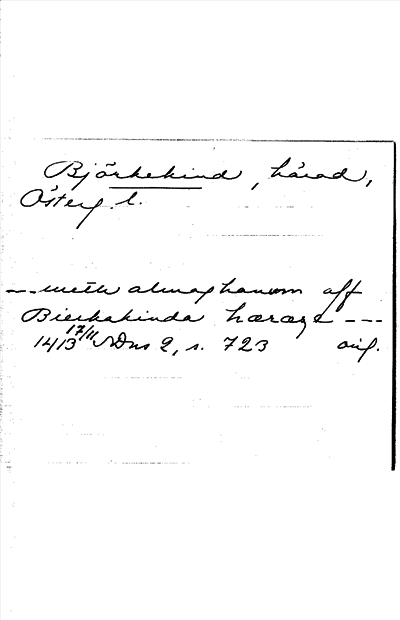 Björkekind, härad,
Österg. l.
--- meth almoghanom aff
Bierkakinda hæræze ---
1413 17/11 SDns 2, s. 723 orig.